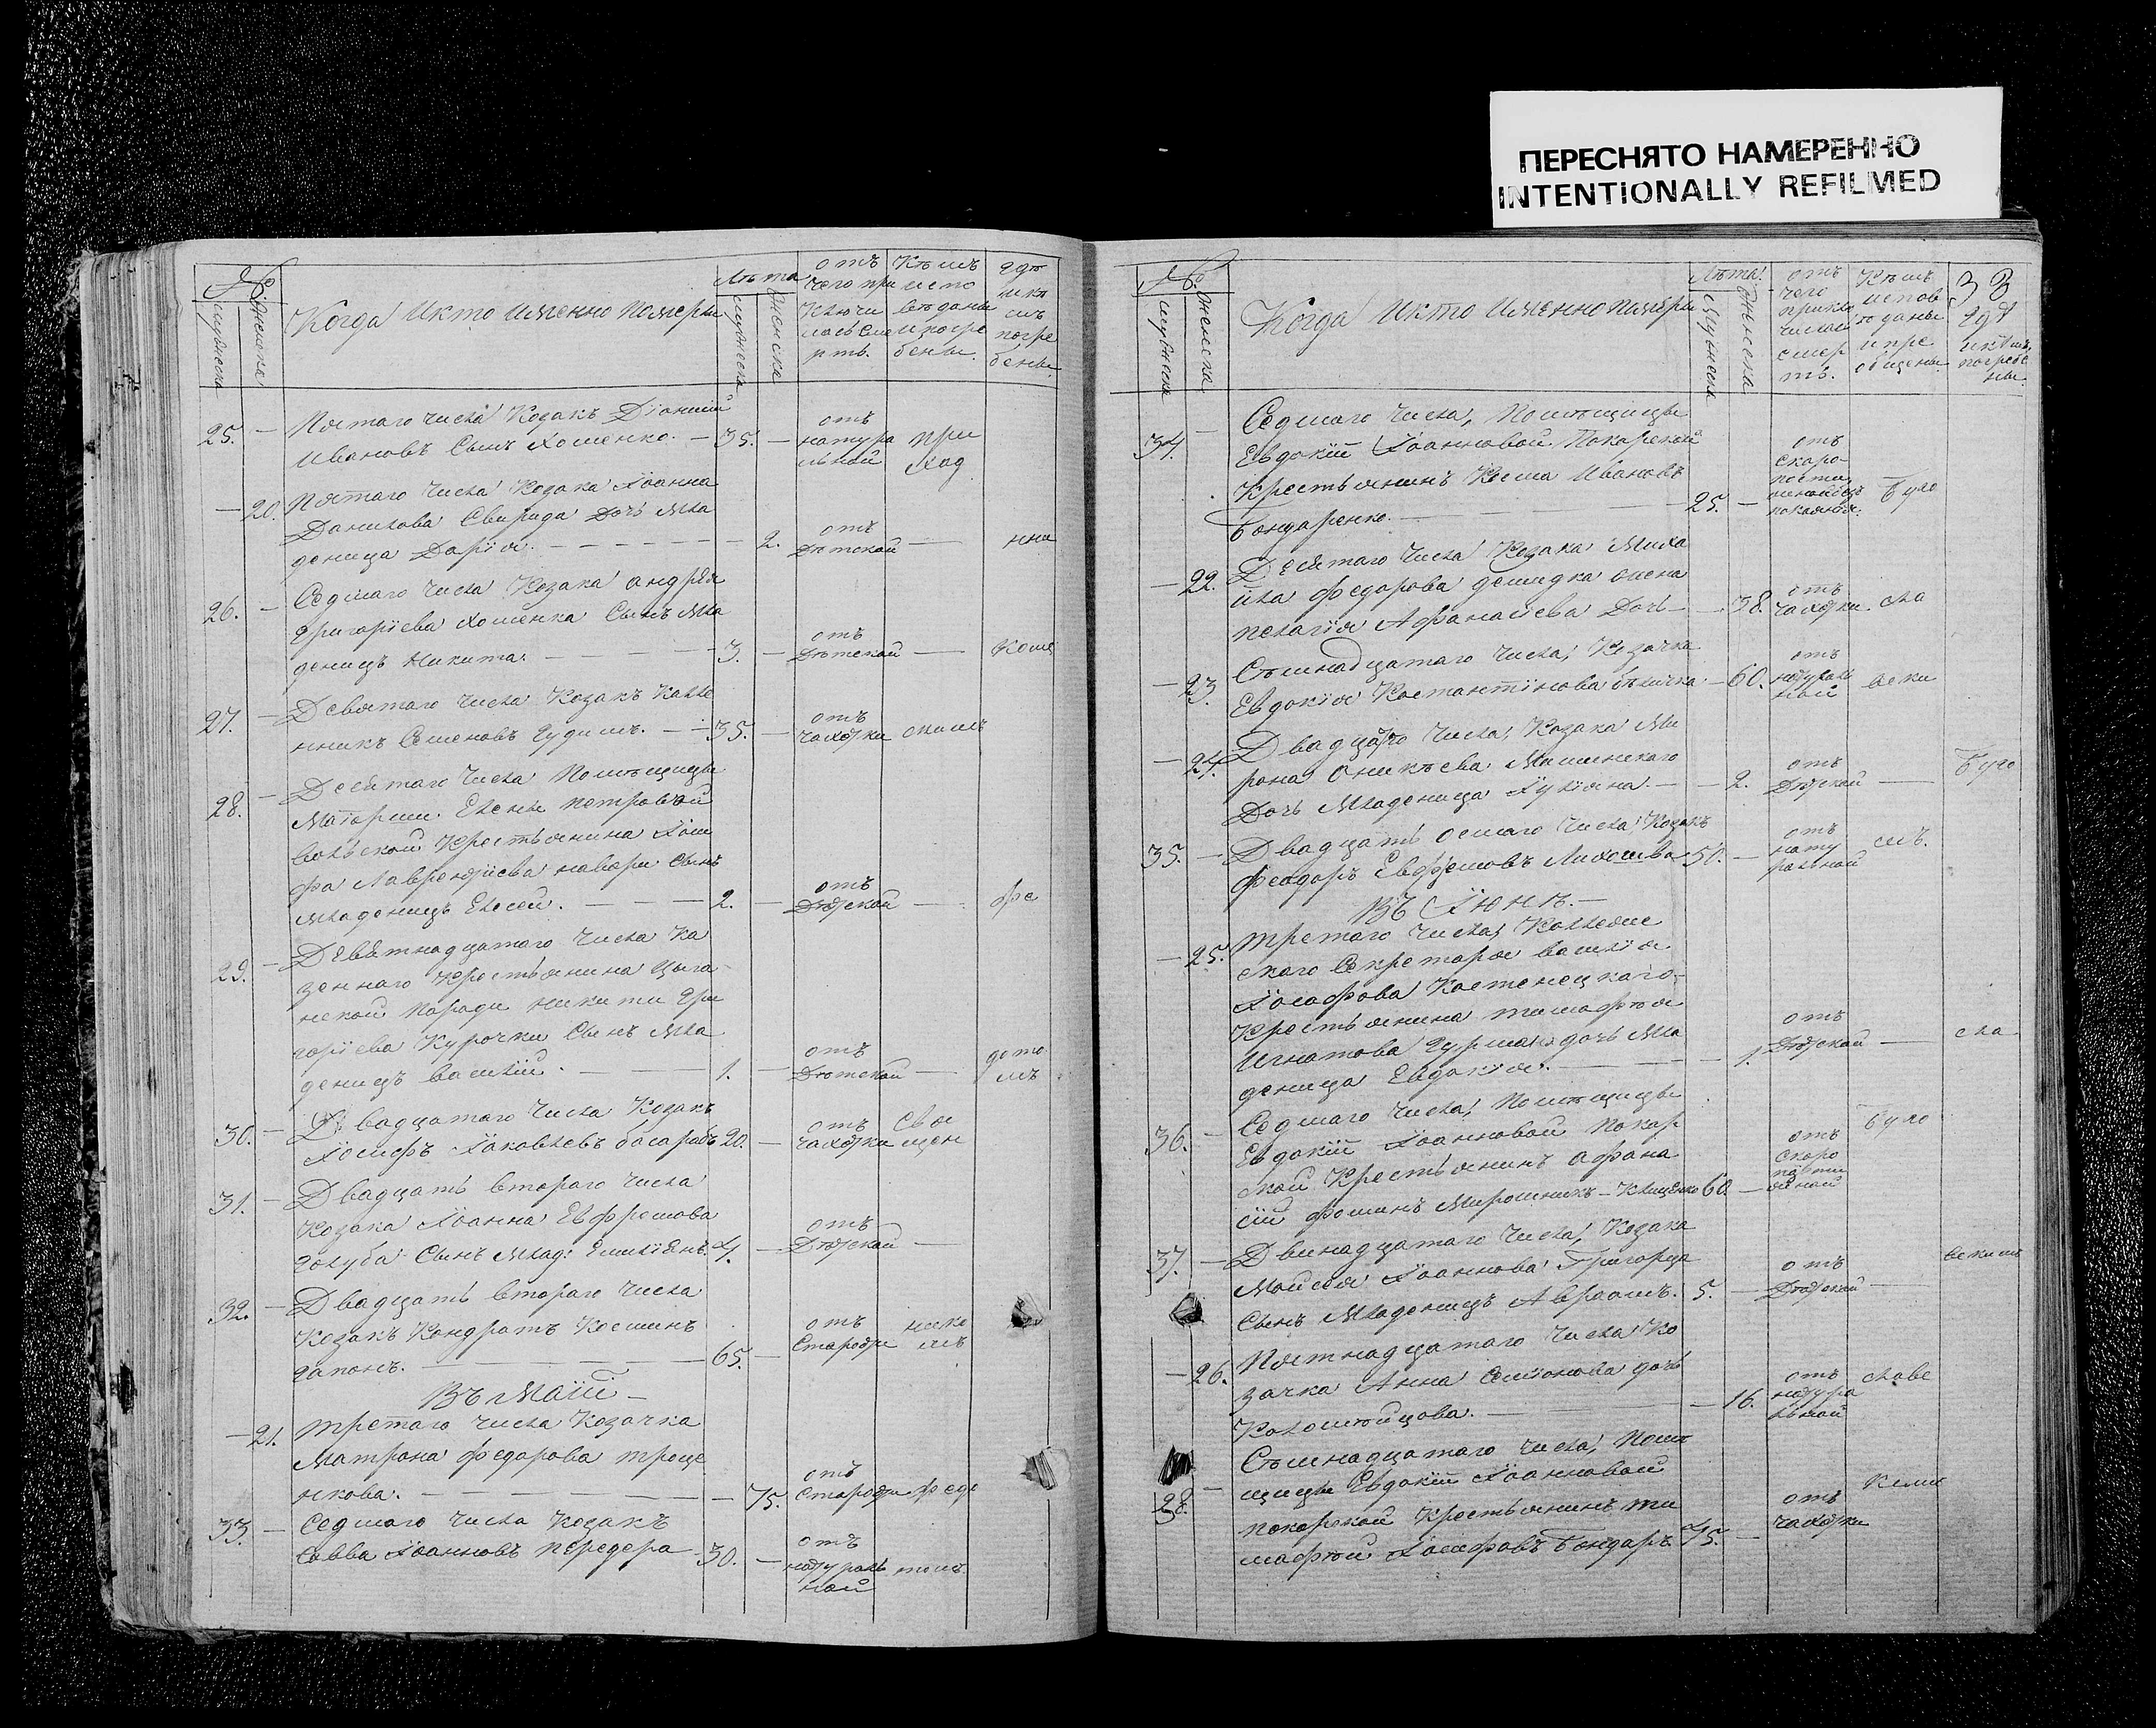 ПЕРЕСНЯТО НАМЕРЕННО
INTENTIONALLY REFILMED
№
Мужеска
Женска
Когда и кто именно померли
Лѣта
Мужеска
Женска
отъ чего приключилась смерть.
Кѣмъ исповѣданы и погребены.
гдѣ и кѣмъ погребены.
25. — Пятаго числа Козакъ Діонисій
Ивановъ Сынъ Хоменко. — 35. — отъ натуральной при ход
— 20. Пятаго числа Козака Іоанна
Данилова Свирида Дочь мла
деница Дарія. — 2. отъ Дѣтской — нна
26. — Седмаго числа Козака Андрея
Григоріева Хоменка Сынъ мла
денецъ Никита. — 3. — отъ Дѣтской —
27. — Девятаго числа Козакъ Калле
никъ Семеновъ Гудимъ. — 35. — отъ чахотки
28. — Десятаго числа Помѣщицы
Маіорши Елены Петровой
Крестьянина
Лаврентіева Сынъ
младенецъ Елисей. — 2. — отъ Дѣтской — фе
29. — Девятнадцатаго числа Ка
зеннаго Крестьянина Цыга
нской породи Никити Гри
горіева Курочки Сынъ мла
денецъ Василій. — 1. — отъ Дѣтской — дото мъ
30. — Двадцатаго числа Козакъ
Іосифъ Іаковлевъ басарабъ 20. — отъ чахотки Свя щен
31. — Двадцать втораго числа
Козака Іоанна Евфремова
Голуба Сынъ млад: Емиліянъ. 4. — отъ Дѣтской —
32. — Двадцать втораго числа
Козакъ Кондратъ Косминъ
Гапонъ. — 65. — отъ Старости нико мъ
Въ Маіи —
— 21. Третаго числа Козачка
Матрона Федорова Троце
нкова. — 75. отъ Старости феде
33. — Седмаго числа Козакъ
Савва Іоанновъ Передера — 30. — отъ натураль ной томъ.
№
Мужеска
Женска
Когда и кто именно померли
Лѣта
Мужеска
Женска
отъ чего приключилась смерть.
Кѣмъ исповѣданы и преобщены
33
гдѣ и кѣмъ погребены.
34. — Седмаго числа, Помѣщицы
Евдокіи Іоанновой Покорской
Крестьянинъ Косма Ивановъ
Бондаренко. — 25. — отъ скоро- Буго
— 22. Десятаго числа Козака Миха
йла Федорова Демидка жена
Пелагія Афанасіева Дочь — 38. отъ чахотки. сла
— 23. Семнадцатаго числа, Козачка
Евдокія Костантінова — 60. отъ натураль ной вски
— 24. Двадцатаго числа, Козака Ми
рона Оникѣева Мишинскаго
Дочь младеница Іуліяна. — 2. отъ Дѣтской — Буго
35. — Двадцать осмаго числа Козакъ
Феодоръ Евфремовъ 50. — отъ нату ральной мъ.
Въ Іюнѣ. —
— 25. Третаго числа, Коллежс
скаго Секретаря Василія
Іоасафова Костенецкаго
Крестьянина Тимофѣя
Игнатова дочь мла
деница Евдокія. — 1. отъ Дѣтской — сла
36. — Седмаго числа, Помѣщицы
Евдокіи Іоанновой Покор
ской Крестьянинъ Афана
сій Фоминъ Мирошникъ — Клищенко 60. — отъ скоро Буго
37. — Двенадцатаго числа, Козака
Моисея Іоаннова Григорца
Сынъ младенецъ Авраамъ. 5. — отъ Дѣтской — вскимъ
— 26. Пятнадцатаго числа Ко
зачка Анна Семіонова дочь
Коломѣйцова. — 16. отъ натура льной славе
38. — Семнадцатаго числа, Помѣ
щицы Евдокіи Іоанновой
Покорской Крестьянинъ Ти
мофѣй Іосифовъ Бондарь. 45. — отъ чахотки